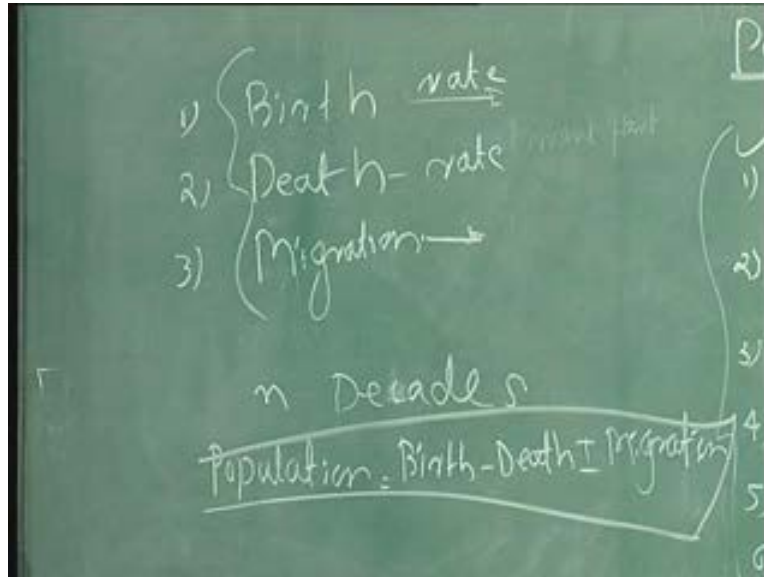 1) Birth rate
2) Death - rate
3) Migration →
n Decades
Population = Birth - Death ± Migration
1)
2)
3)
4
5)